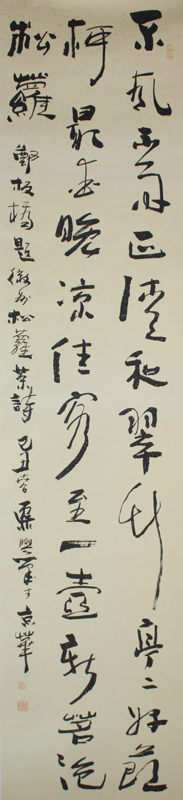 不風不雨正清和翠竹亭々好節
柯最愛晚凉佳客至一壺新茗泡
松蘿
鄭板橋題徽州松蘿茶詩 己丑春 興筆于京華